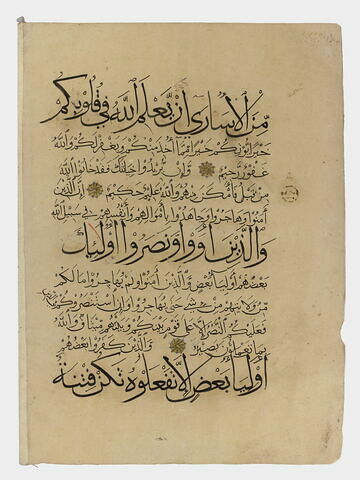 مِنَ الاساری ان یعلم الله فی قلوبکم
خیرا یؤتکم خیرا مما اخذ منکم ویغفر لکم والله
غفور رحیم وان یریدوا خیانتک فقد خانوا الله
من قبل فامکن منهم والله علیم حکیم ان الذین
امنوا وهاجروا وجاهدوا باموالهم وانفسهم فی سبیل الله
والذین اووا ونصروا اولئک
بعضهم اولیا بعض والذین امنوا ولم یهاجروا ما لکم
من ولایتهم من شیء حتی یهاجروا وان استنصروکم فی الدین
فعلیکم النصر الا علی قوم بینکم وبینهم میثاق والله
بما تعملون بصیر والذین کفروا بعضهم
اولیا بعض الا تفعلوه تکن فتنة